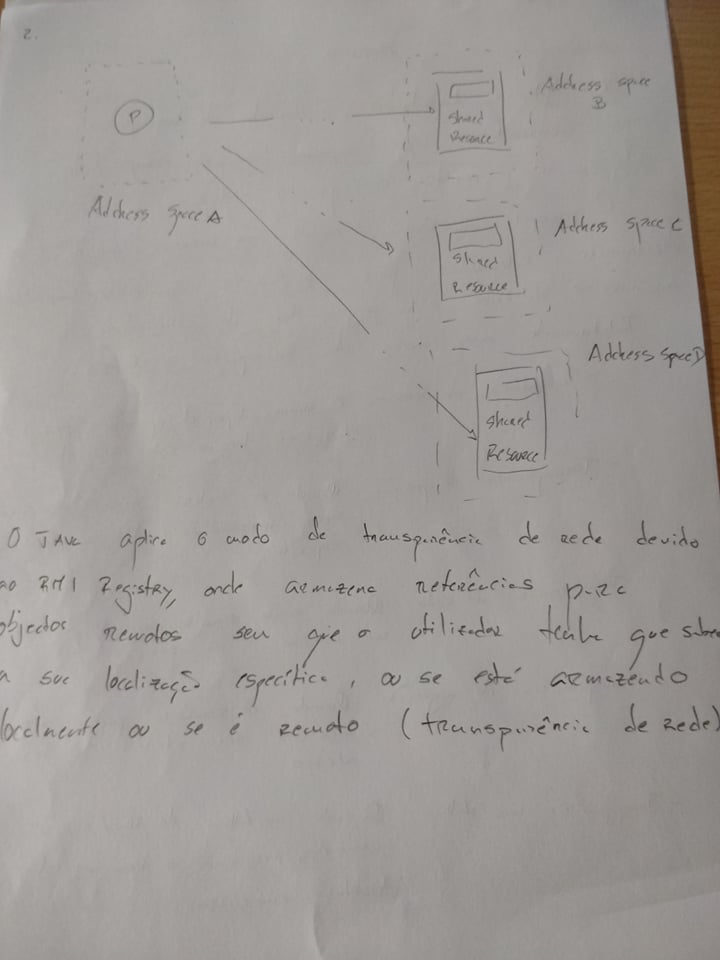 2.
P
Address space A
Shared
Resource
Address space
B
Shared
Resource
Address space C
Shared
Resource
Address space D
O JAVA aplica o modo de transparência de rede devido
ao RMI Registry, onde armazena referências para
objectos remotos sem que o utilizador tenha que saber
a sua localização específica, ou se está armazendo
localmente ou se é remoto (transparência de rede)